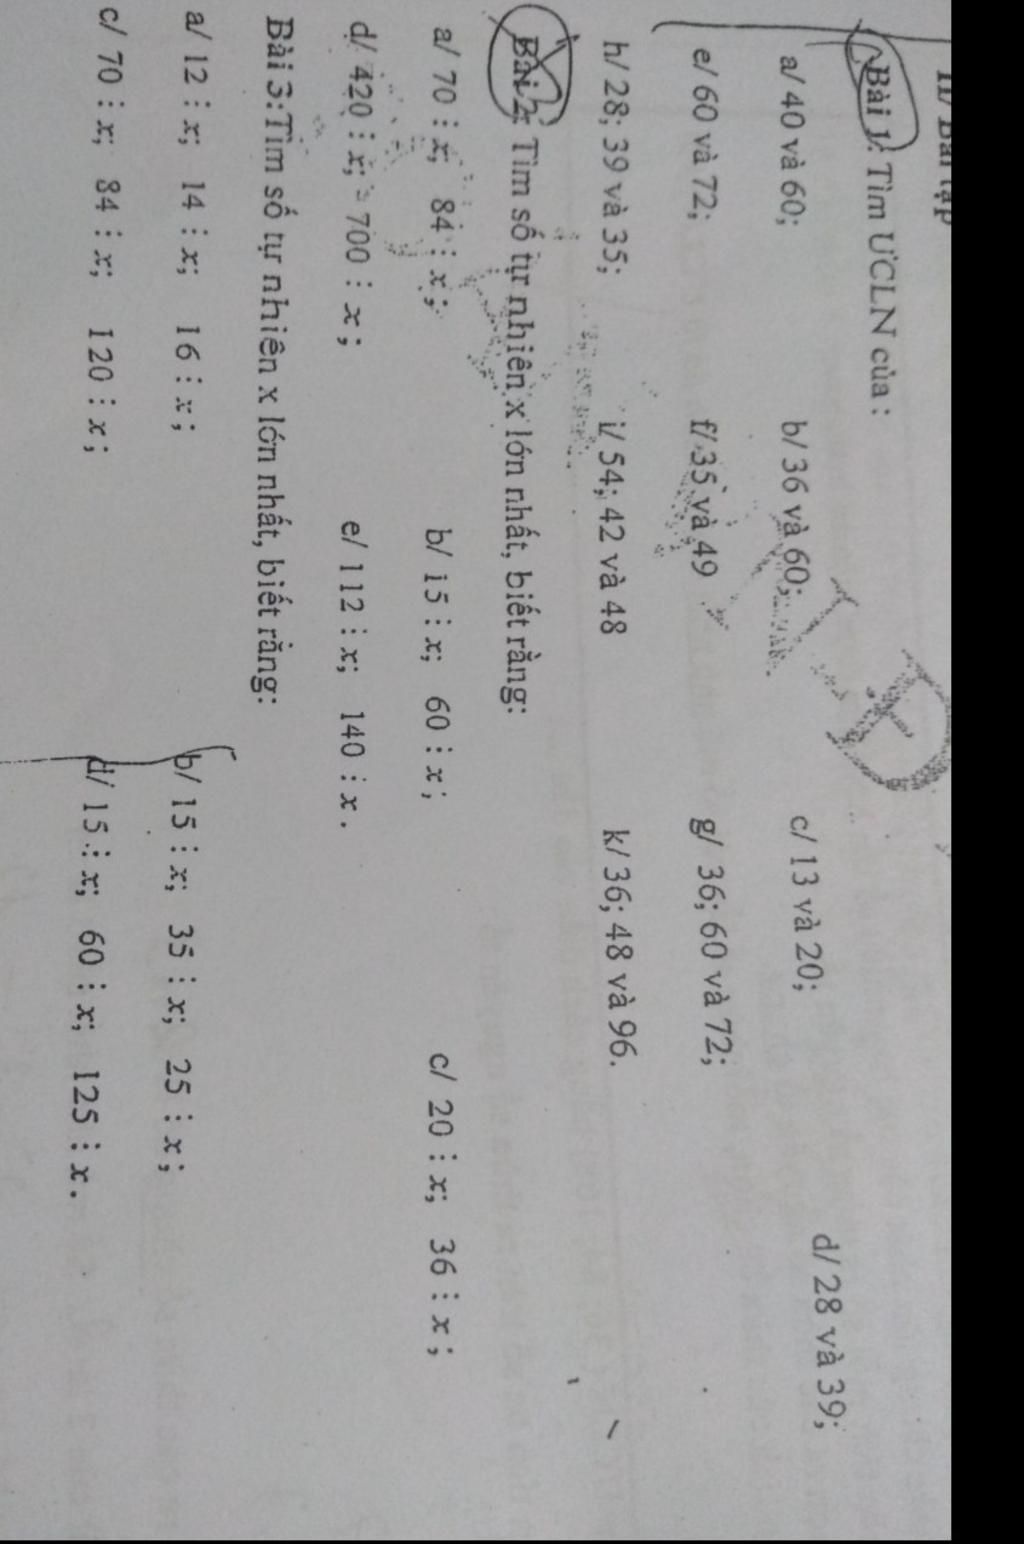 II/ Bài tập
Bài 1: Tìm ƯCLN của :
a/ 40 và 60; b/ 36 và 60; c/ 13 và 20; d/ 28 và 39;
e/ 60 và 72; f/ 35 và 49 g/ 36; 60 và 72;
h/ 28; 39 và 35; i/ 54; 42 và 48 k/ 36; 48 và 96.
Bài 2: Tìm số tự nhiên x lớn nhất, biết rằng:
a/ 70 ⋮ x; 84 ⋮ x; b/ 15 ⋮ x; 60 ⋮ x; c/ 20 ⋮ x; 36 ⋮ x;
d/ 420 ⋮ x; 700 ⋮ x; e/ 112 ⋮ x; 140 ⋮ x.
Bài 3:Tìm số tự nhiên x lớn nhất, biết rằng:
a/ 12 ⋮ x; 14 ⋮ x; 16 ⋮ x; b/ 15 ⋮ x; 35 ⋮ x; 25 ⋮ x;
c/ 70 ⋮ x; 84 ⋮ x; 120 ⋮ x; d/ 15 ⋮ x; 60 ⋮ x; 125 ⋮ x.